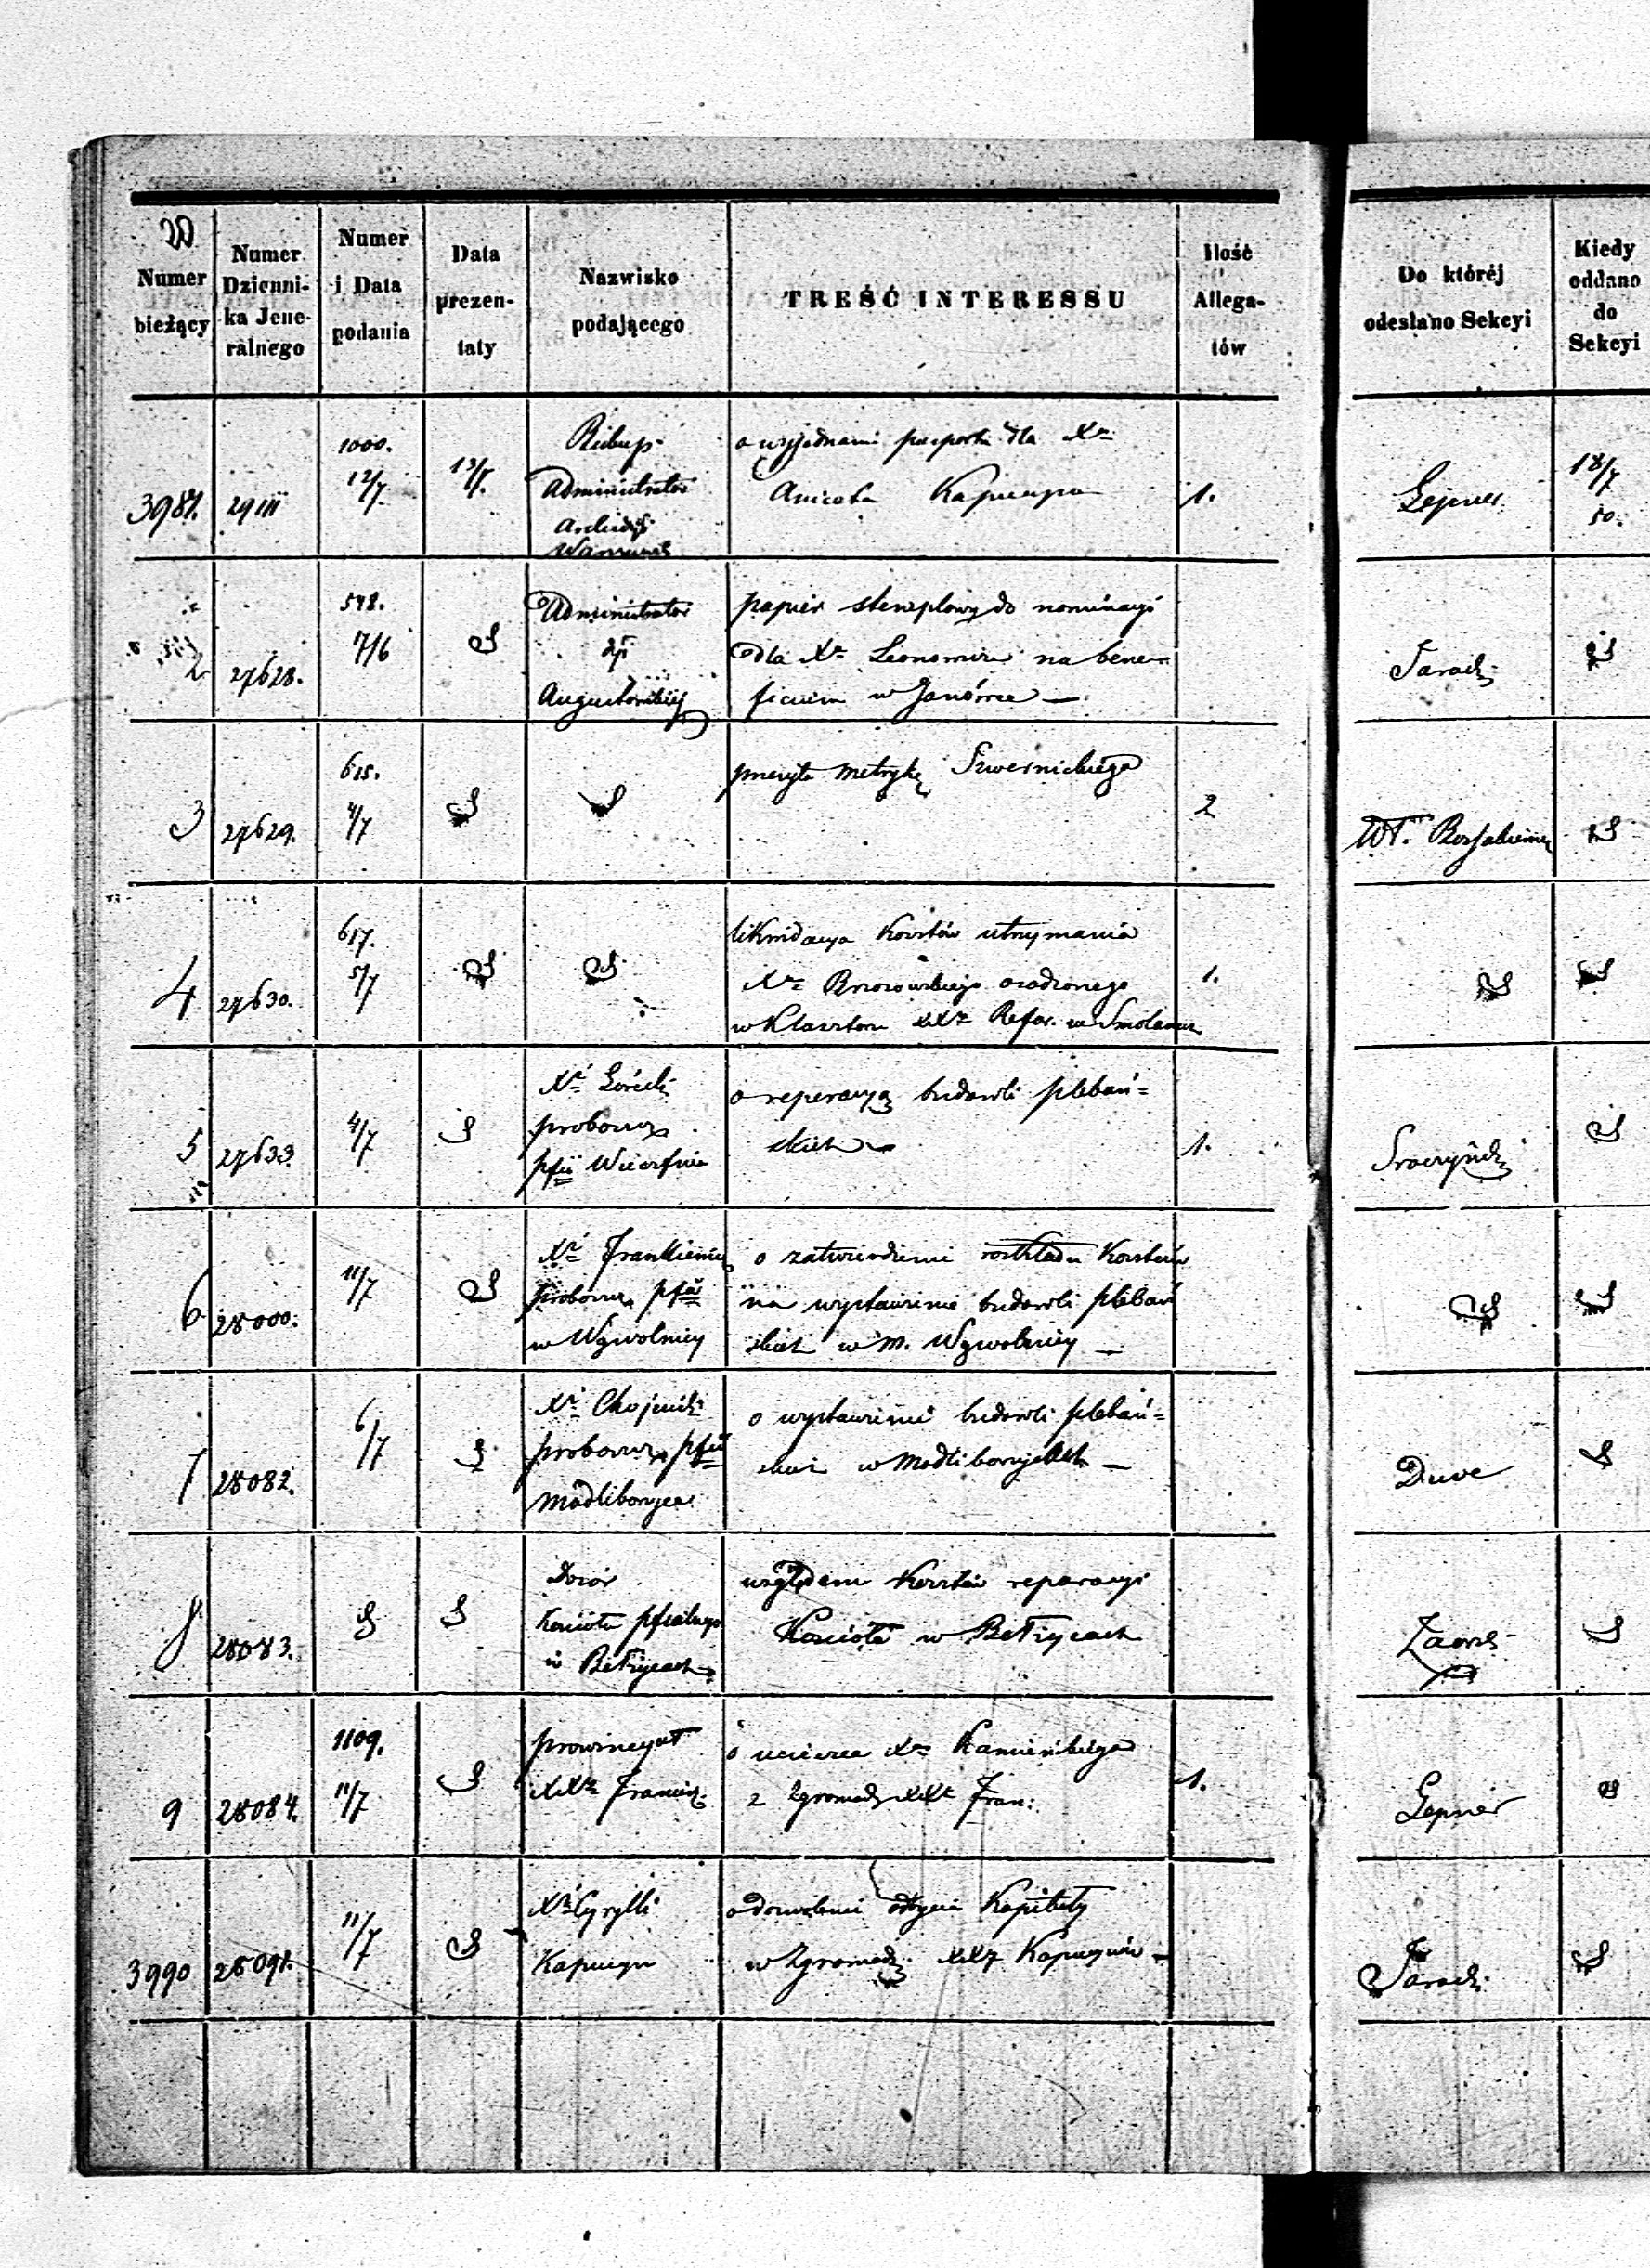 W
Numer
bieżący
Numer
Dzienni-
ka Jene-
ralnego
Numer
i Data
podania
Data
prezen-
taty
Nazwisko
podającego
TREŚĆ INTERESSU
Ilość
Allega-
tów
Do któréj
odesłano Sekcyi
Kiedy
oddano
do
Sekcyi
3981.
1000.
12/7
Biskup
Administrator
o wyjednanie paszportu dla Xa
Aniceta Kapucyna
1.
18/7
50.
2
27628.
548.
7/6
Administrator
Augustowskiej
papier stemplowy do nominacyi
dla Xa na bene-
ficium w Janówce —
3
27629.
615.
4/7
metrykę Szwernickiego
2
4
27630.
617.
5/7
likwidacya kosztów utrzymania
Xa Brzozowskiego osadzonego
w Klasztorze XXr Refor. w
1.
5
27633
4/7
Xi Górecki
proboszcz
pfii Wieczfnia
o reperacyą budowli plebań=
skich
1.
6
28000.
11/7
proboszcz pfii
w Wąwolnicy
o zatwierdzenie rozkładu kosztów
na wystawienie budowli plebań
skich w m. Wąwolnicy —
7
28082.
6/7
Xi Chojnicki
proboszcz pfii
Modliborzyce
o wystawienie budowli plebań=
skich w Modliborzycach —
Duve
8
28083.
Dozór
Kościoła pfialnego
w Bełżycach
względem kosztów reparacyi
Kościoła w Bełżycach
9
28084.
1109.
11/7
prowincyał
XXr Francisz.
o ucieczce Xa Kamieńskiego
z Zgromadz XXr Fran:
1.
Lepner
3990
28091.
11/7
Xi Cyrylli
Kapucyn
o dozwolenie odbycia Kapituły
w Zgromadz. XXr Kapucynów —